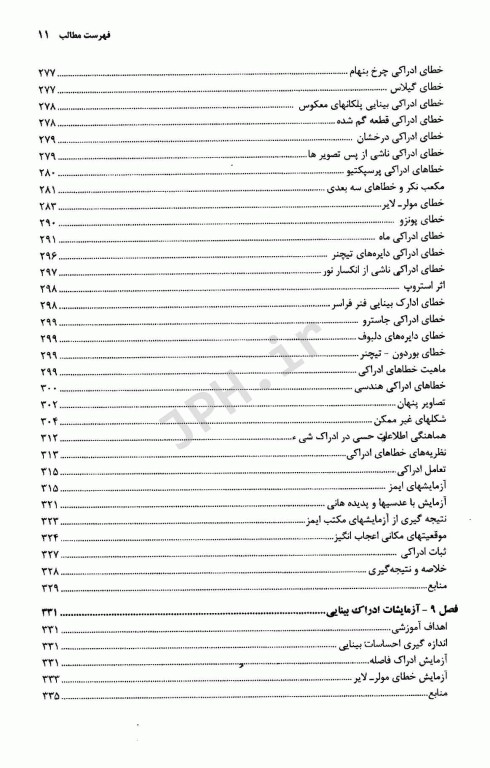 فهرست مطالب ۱۱
خطای ادراکی چرخ بنهام ........ ۲۷۷
خطای گیلاس ........ ۲۷۷
خطای ادراکی بینایی پلکانهای معکوس ........ ۲۷۸
خطای ادراکی قطعه گم شده ........ ۲۷۸
خطای ادراکی درخشان ........ ۲۷۹
خطای ادراکی ناشی از پس تصویر ها ........ ۲۷۹
خطاهای ادراکی پرسپکتیو ........ ۲۸۰
مکعب نکر و خطاهای سه بعدی ........ ۲۸۱
خطای مولر- لایر ........ ۲۸۳
خطای پونزو ........ ۲۹۰
خطای ادراکی ماه ........ ۲۹۱
خطای ادراکی دایره‌های تیچنر ........ ۲۹۶
خطای ادراکی ناشی از انکسار نور ........ ۲۹۷
اثر استروپ ........ ۲۹۸
خطای ادارک بینایی فنر فراسر ........ ۲۹۸
خطای ادراکی جاسترو ........ ۲۹۹
خطای دایره‌های دلبوف ........ ۲۹۹
خطای بوردون - تیچنر ........ ۲۹۹
ماهیت خطاهای ادراکی ........ ۲۹۹
خطاهای ادراکی هندسی ........ ۳۰۰
تصاویر پنهان ........ ۳۰۲
شکلهای غیر ممکن ........ ۳۰۴
هماهنگی اطلاعات حسی در ادراک شی ء ........ ۳۱۲
نظریه‌های خطاهای ادراکی ........ ۳۱۳
تعامل ادراکی ........ ۳۱۵
آزمایشهای ایمز ........ ۳۱۵
آزمایش با عدسیها و پدیده هانی ........ ۳۲۱
نتیجه گیری از آزمایشهای مکتب ایمز ........ ۳۲۳
موقعیتهای مکانی اعجاب انگیز ........ ۳۲۴
ثبات ادراکی ........ ۳۲۷
خلاصه و نتیجه‌گیری ........ ۳۲۸
منابع ........ ۳۲۹
فصل ۹ - آزمایشات ادراک بینایی ........ ۳۳۱
اهداف آموزشی ........ ۳۳۱
اندازه گیری احساسات بینایی ........ ۳۳۱
آزمایش ادراک فاصله ........ ۳۳۱
آزمایش خطای مولر- لایر ........ ۳۳۳
منابع ........ ۳۳۵
JPH.ir